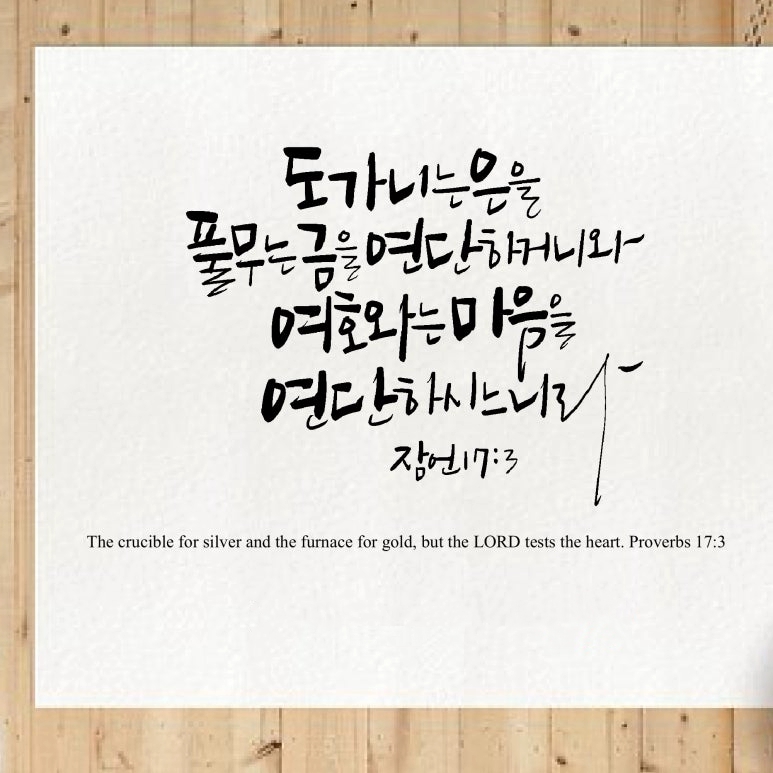 도가니는 은을
풀무는 금을 연단하거니와
여호와는 마음을
연단하시느니라
잠언 17:3
The crucible for silver and the furnace for gold, but the LORD tests the heart. Proverbs 17:3